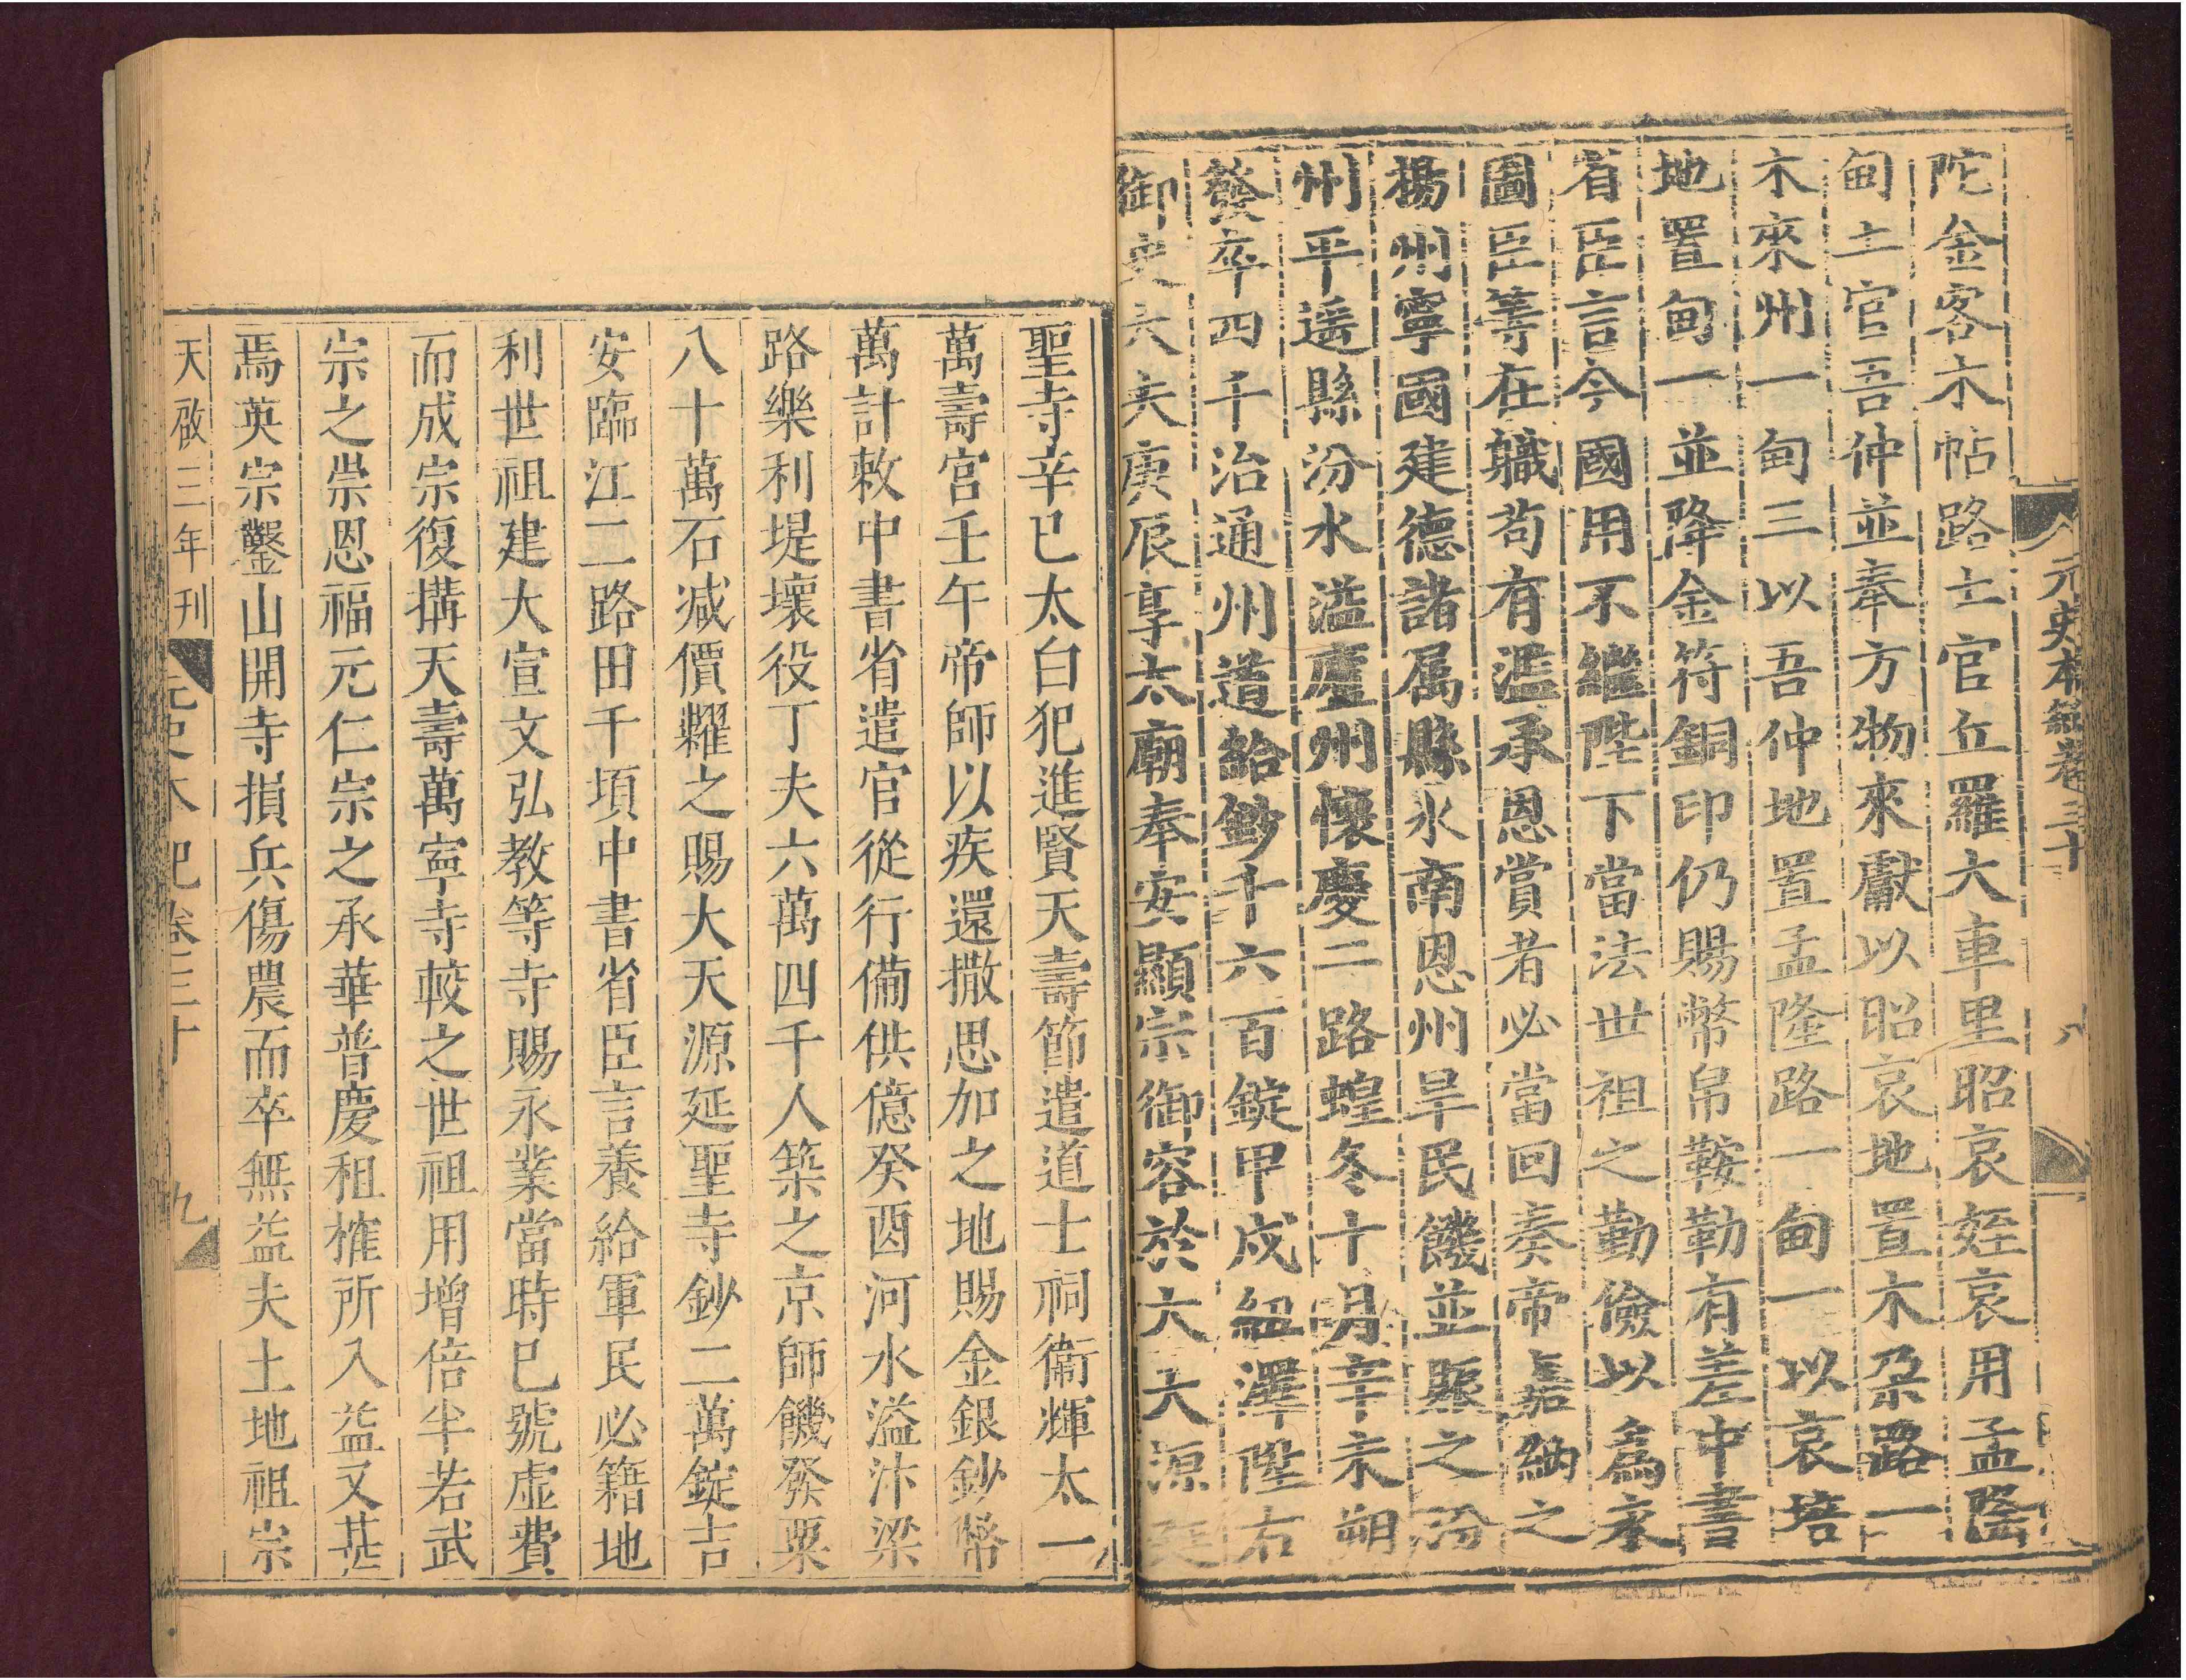 元史本紀卷三十
八
陀金客木帖路土官丘羅大車里昭哀姪哀用孟隆
甸土官吾仲並奉方物來獻以昭哀地置木朶路一
木來州一甸三以吾仲地置孟隆路一甸一以哀培
地置甸一並降金符銅印仍賜幣帛鞍勒有差中書
省臣言今國用不繼陛下當法世祖之勤儉以爲永
圖臣等在職苟有濫承恩賞者必當回奏帝嘉納之
揚州寧國建德諸属縣水南恩州旱民饑並賑之汾
州平遥縣汾水溢廬州懷慶二路蝗冬十月辛未朔
發卒四千治通州道給鈔千六百錠甲戌紐澤陞右
御史大夫庚辰享太廟奉安顯宗御容於大天源延
聖寺辛巳太白犯進賢天壽節遣道士祠衞輝太一
萬壽宫壬午帝師以疾還撒思加之地賜金銀鈔幣
萬計敕中書省遣官從行備供億癸酉河水溢汴梁
路樂利堤壞役丁夫六萬四千人築之京師饑發粟
八十萬石减價糶之賜大天源延聖寺鈔二萬錠吉
安臨江二路田千頃中書省臣言養給軍民必籍地
利世祖建大宣文弘教等寺賜永業當時已號虛費
而成宗復搆天壽萬寧寺較之世祖用增倍半若武
宗之崇恩福元仁宗之承華普慶租榷所入益又甚
焉英宗鑿山開寺損兵傷農而卒無益夫土地祖宗
天啟三年刊
元史本紀卷三十
九